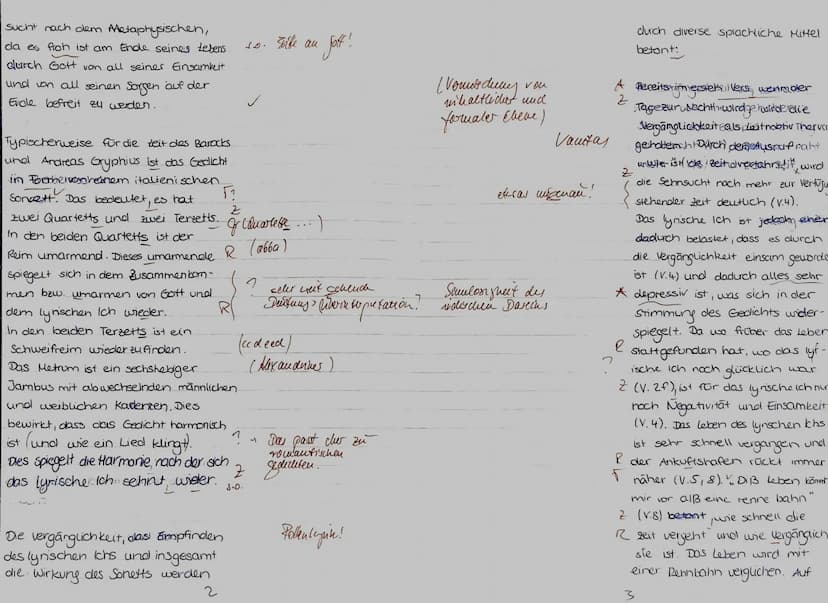 sucht nach dem Metaphysischen,
da es froh ist am Ende seines Lebens
durch Gott von all seiner Einsamkeit
und von all seinen Sorgen auf der
Erde befreit zu werden.
s.o.
an Gott!
(Vermischung von
inhaltlicher und
formaler Ebene)
Vanitas
Typischerweise für die Zeit des Barocks
und Andreas Gryphius ist das Gedicht
im italienischen
Sonett. Das bedeutet, es hat
zwei Quartetts und zwei Terzetts.
In den beiden Quartetts ist der
Reim umarmend. Dieses umarmende
spiegelt sich in dem Zusammenkom-
men bzw. umarmen von Gott und
dem lyrischen Ich wieder.
In den beiden Terzetts ist ein
Schweifreim wiederzufinden.
Das Metrum ist ein sechshebiger
Jambus mit abwechselnden männlichen
und weiblichen Kadenzen. Dies
bewirkt, dass das Gedicht harmonisch
ist (und wie ein Lied klingt).
Dies spiegelt die Harmonie, nach der sich
das lyrische Ich sehnt, wider.
Z
Gr (Quartette ...)
R (abba)
? sehr weit gehende
Deutung > Überinterpretation?
R
(ccdeed)
(Alexandriner)
? Das passt eher zu
romantischen
Gedichten.
Z
s.o.
etwas ungenau!
Sinnlosigkeit des
irdischen Daseins
Die vergänglichkeit, das Empfinden
des lyrischen Ichs und insgesamt
die Wirkung des Sonetts werden
2
durch diverse sprachliche Mittel
betont:
A
Z
Vergänglichkeit als Leitmotiv
Z
die Sehnsucht nach mehr zur Verfügu
stehender Zeit deutlich (V.4).
Das lyrische Ich ist
dadurch belastet, dass es durch
die Vergänglichkeit einsam geworde
ist (V.4) und dadurch alles sehr
A depressiv ist, was sich in der
Stimmung des Gedichts wider-
spiegelt. Da wo früher das Leben
R stattgefunden hat, wo das lyr-
? ische Ich noch glücklich war
Z (V. 2f), ist für das lyrische Ich nur
noch Negativität und Einsamkeit
(V.4). Das Leben des lyrischen Ichs
ist sehr schnell vergangen und
R der Ankuftshafen rückt immer
näher (V.5, 8). "DIß Leben kömt
mir vor alß eine renne bahn"
Z (V.8) betont, wie schnell die
R Zeit vergeht und wie Vergänglich
sie ist. Das Leben wird mit
einer Rennbahn verglichen. Auf
3